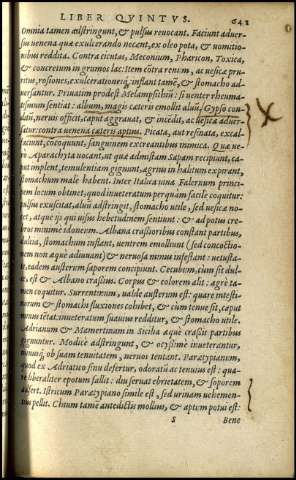 LIBER QVINTVS. 641
Omnia tamen adstringunt, & pulsus reuocant. Faciunt aduer-
sus uenena quæ exulcerando necant, ex oleo pota, & uomitio-
nibus reddita. Contra cicutas, Meconium, Pharicon, Toxica,
& concretum in grumos lac. Item côtra renum, ac uesicæ pru-
ritus, rosiones, exulcerationesq́; inflant tamē, & stomacho ad-
uersantur. Priuatim prodest Melampsithiū: si uenter rheuma-
tismum sentiat: album, magis cæteris emollit aluū. Gypso con-
, neruis officit, caput aggrauat, & incēdit, ac uesicæ aduer-
satur: contra uenena cæteris aptius. Picata, aut resinata, excal-
faciunt, cōcoquunt, sanguinem excreantibus inimica. Quæ ue-
rò Aparachyta uocant, ut quæ admistam Sapam recipiunt, ca-
put implent, temulentiam gignunt, ægrius in halitum expirant,
stomachum male habent. Inter Italica uina Falernum princi-
pem locum obtinet, quod inueteratum perquàm facile coquitur:
pulsus exuscitat, aluū adstringit, stomacho utile, sed uesicæ no-
cet, atque ijs qui uisus hebetudinem sentiunt: & ad potus cre-
bros minime idoneum. Albana crassioribus constant partibus,
dulcia, stomachum inflant, uentrem emolliunt (sed concoctio-
nem non æquè adiuuant) & neruosa minus infestant: uetusta-
te, eadem austerum saporem concipiunt. Cecubum, cum sit dul-
ce, est & Albano crassius. Corpus & colorem alit: ægre ta-
men coquitur. Surrentinum, ualde austerum est: quare intesti-
norum & stomachi fluxiones cohibet, & cùm tenue sit, caput
minus tētat. inueteratum suauius redditur, & stomacho utile.
Adrianum & Mamertinum in Sicilia æquè crassis partibus
gignuntur. Modicè adstringunt, & ocyssimè inueterantur,
minusq́; ob suam tenuitatem, neruos tentant. Paratypianum,
quod ex Adriatico sinu defertur, odoratū ac tenuius est: qua-
re liberaliter epotum fallit: diu seruat ebrietatem, & soporem
affert. Istricum Paratypiano simile est, sed urinam uehemen-
tius pellit. Chium tamē antedictis mollius, & aptum potui est:
S Bene